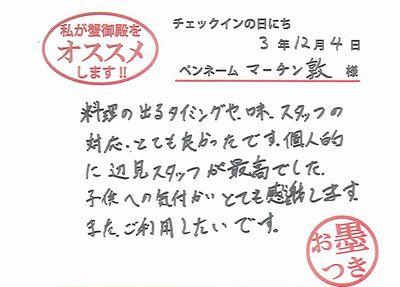 私が蟹御殿を
オススメ
します!!
チェックインの日にち
3年12月4日
ペンネーム マーチン敦 様
料理の出るタイミングや、味、スタッフの
対応、とても良かったです。個人的
に辺見スタッフが最高でした。
子供への気付かいとても感謝します。
また、ご利用したいです。
お墨
つき